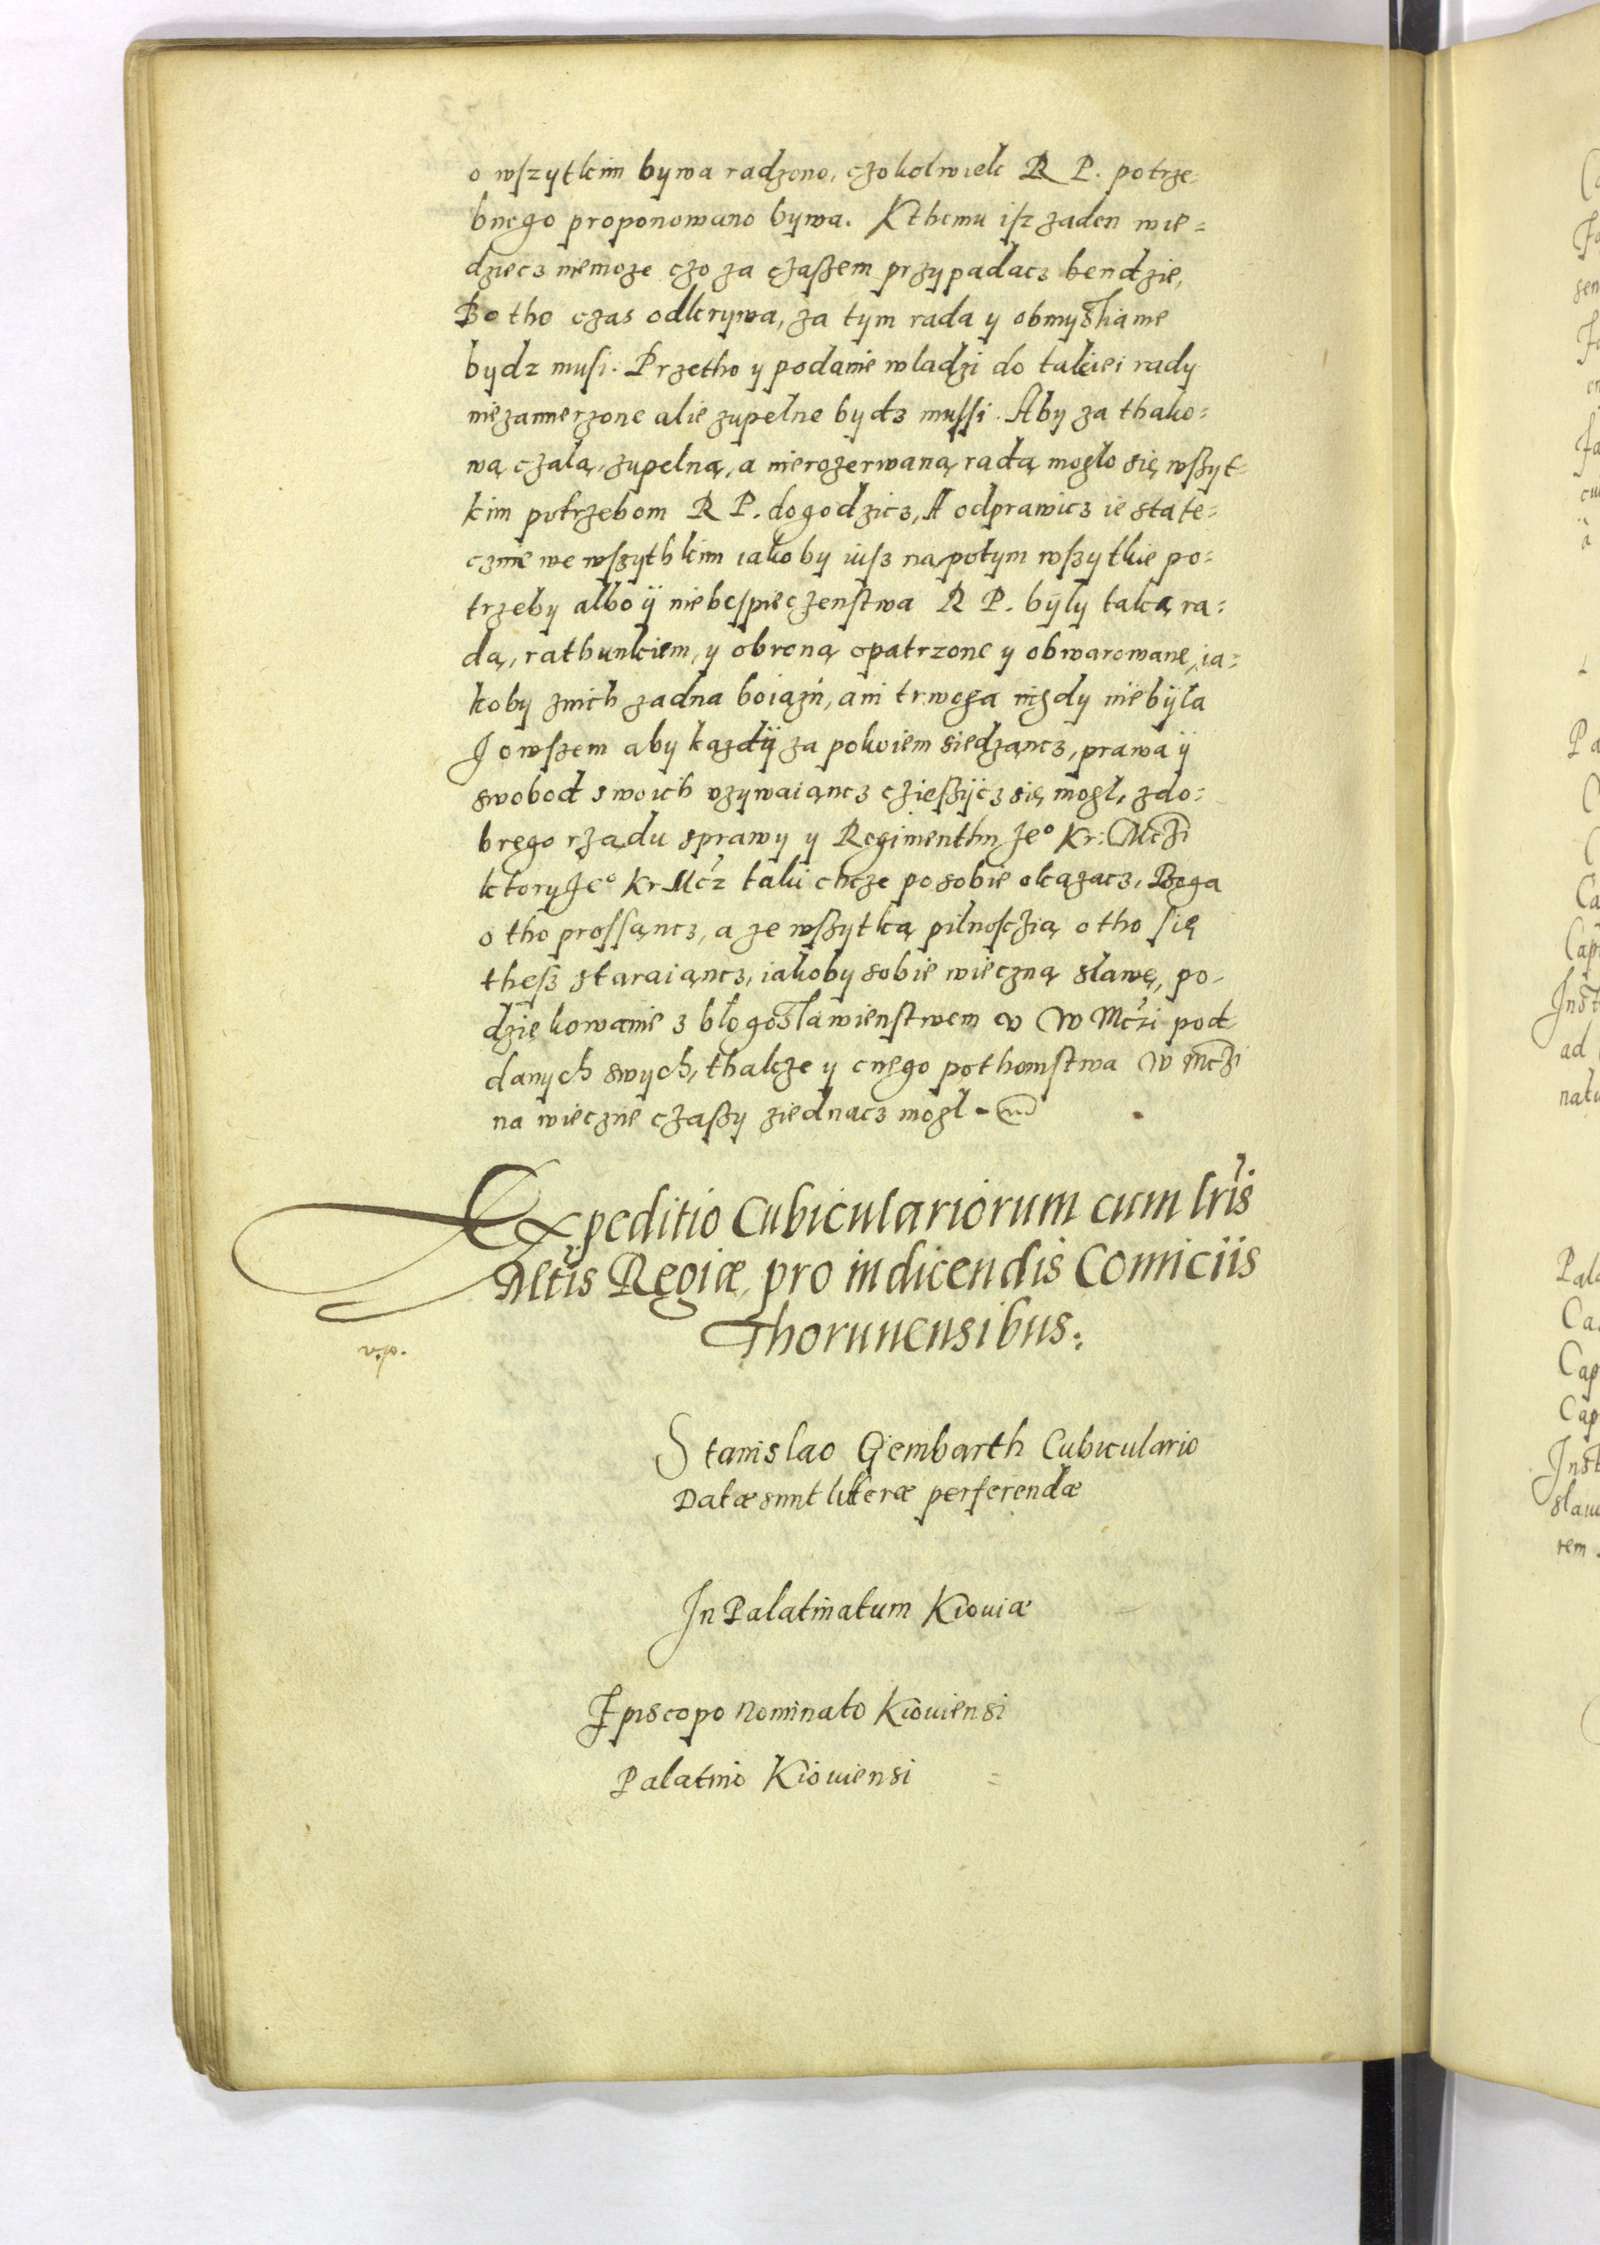 o wszytkim bywa radzono, czokolwiek R P. potrze-
bnego proponowano bywa. Kthemu isz zaden wie-
dziecz niemoze czo za czaszem przypadacz bendzie,
Bo tho czas odkrywa, za tym rada y obmyslianie
bydz musi. Przetho y podanie wladzi do takiei rady
niezamierzone alie zupelne bydz mussi. Aby za thako-
wą czalą, zupelną, a nierozerwaną radą moglo się wszyt-
kim potrzebom R P. dogodzicz, A odprawicz ie state-
cznie we wszythkim iakoby iusz na potym wszytkie po-
trzeby albo ÿ niebespieczenstwa R P. bÿly taką ra-
dą, rathunkiem, y obroną opatrzone y obwarowane, ia-
koby znich zadna boiazń, ani trwoga nigdy niebÿla
I owszem aby kazdÿ za pokoiem siedzancz, prawa ÿ
swobod swoich vzywaiancz czieszÿcz się mogl, zdo-
brego rządu sprawy y Regimenthu Je° Kr: Mczi
ktory Je° Kr Mcz taki chcze po sobie okazacz, Boga
o tho prossancz, a ze wszytką pilnosczią o tho się
thesz staraiancz, iakoby sobie wieczną slawę, po-
dziękowanie z błogoslawienstwem v W Mczi pod
danych swych, thakze y cnego pothomstwa W Mczi
na wieczne czaszy ziednacz mogl.
Expeditio Cubiculariorum cum lris
Mtis Regiæ, pro indicendis Comiciis
Thorunensibus:
Stanislao Gembarth Cubiculario
Datæ sunt litteræ perferendæ
In Palatinatum Kiouiæ
Episcopo Nominato Kiouiensi
Palatino Kiouiensi